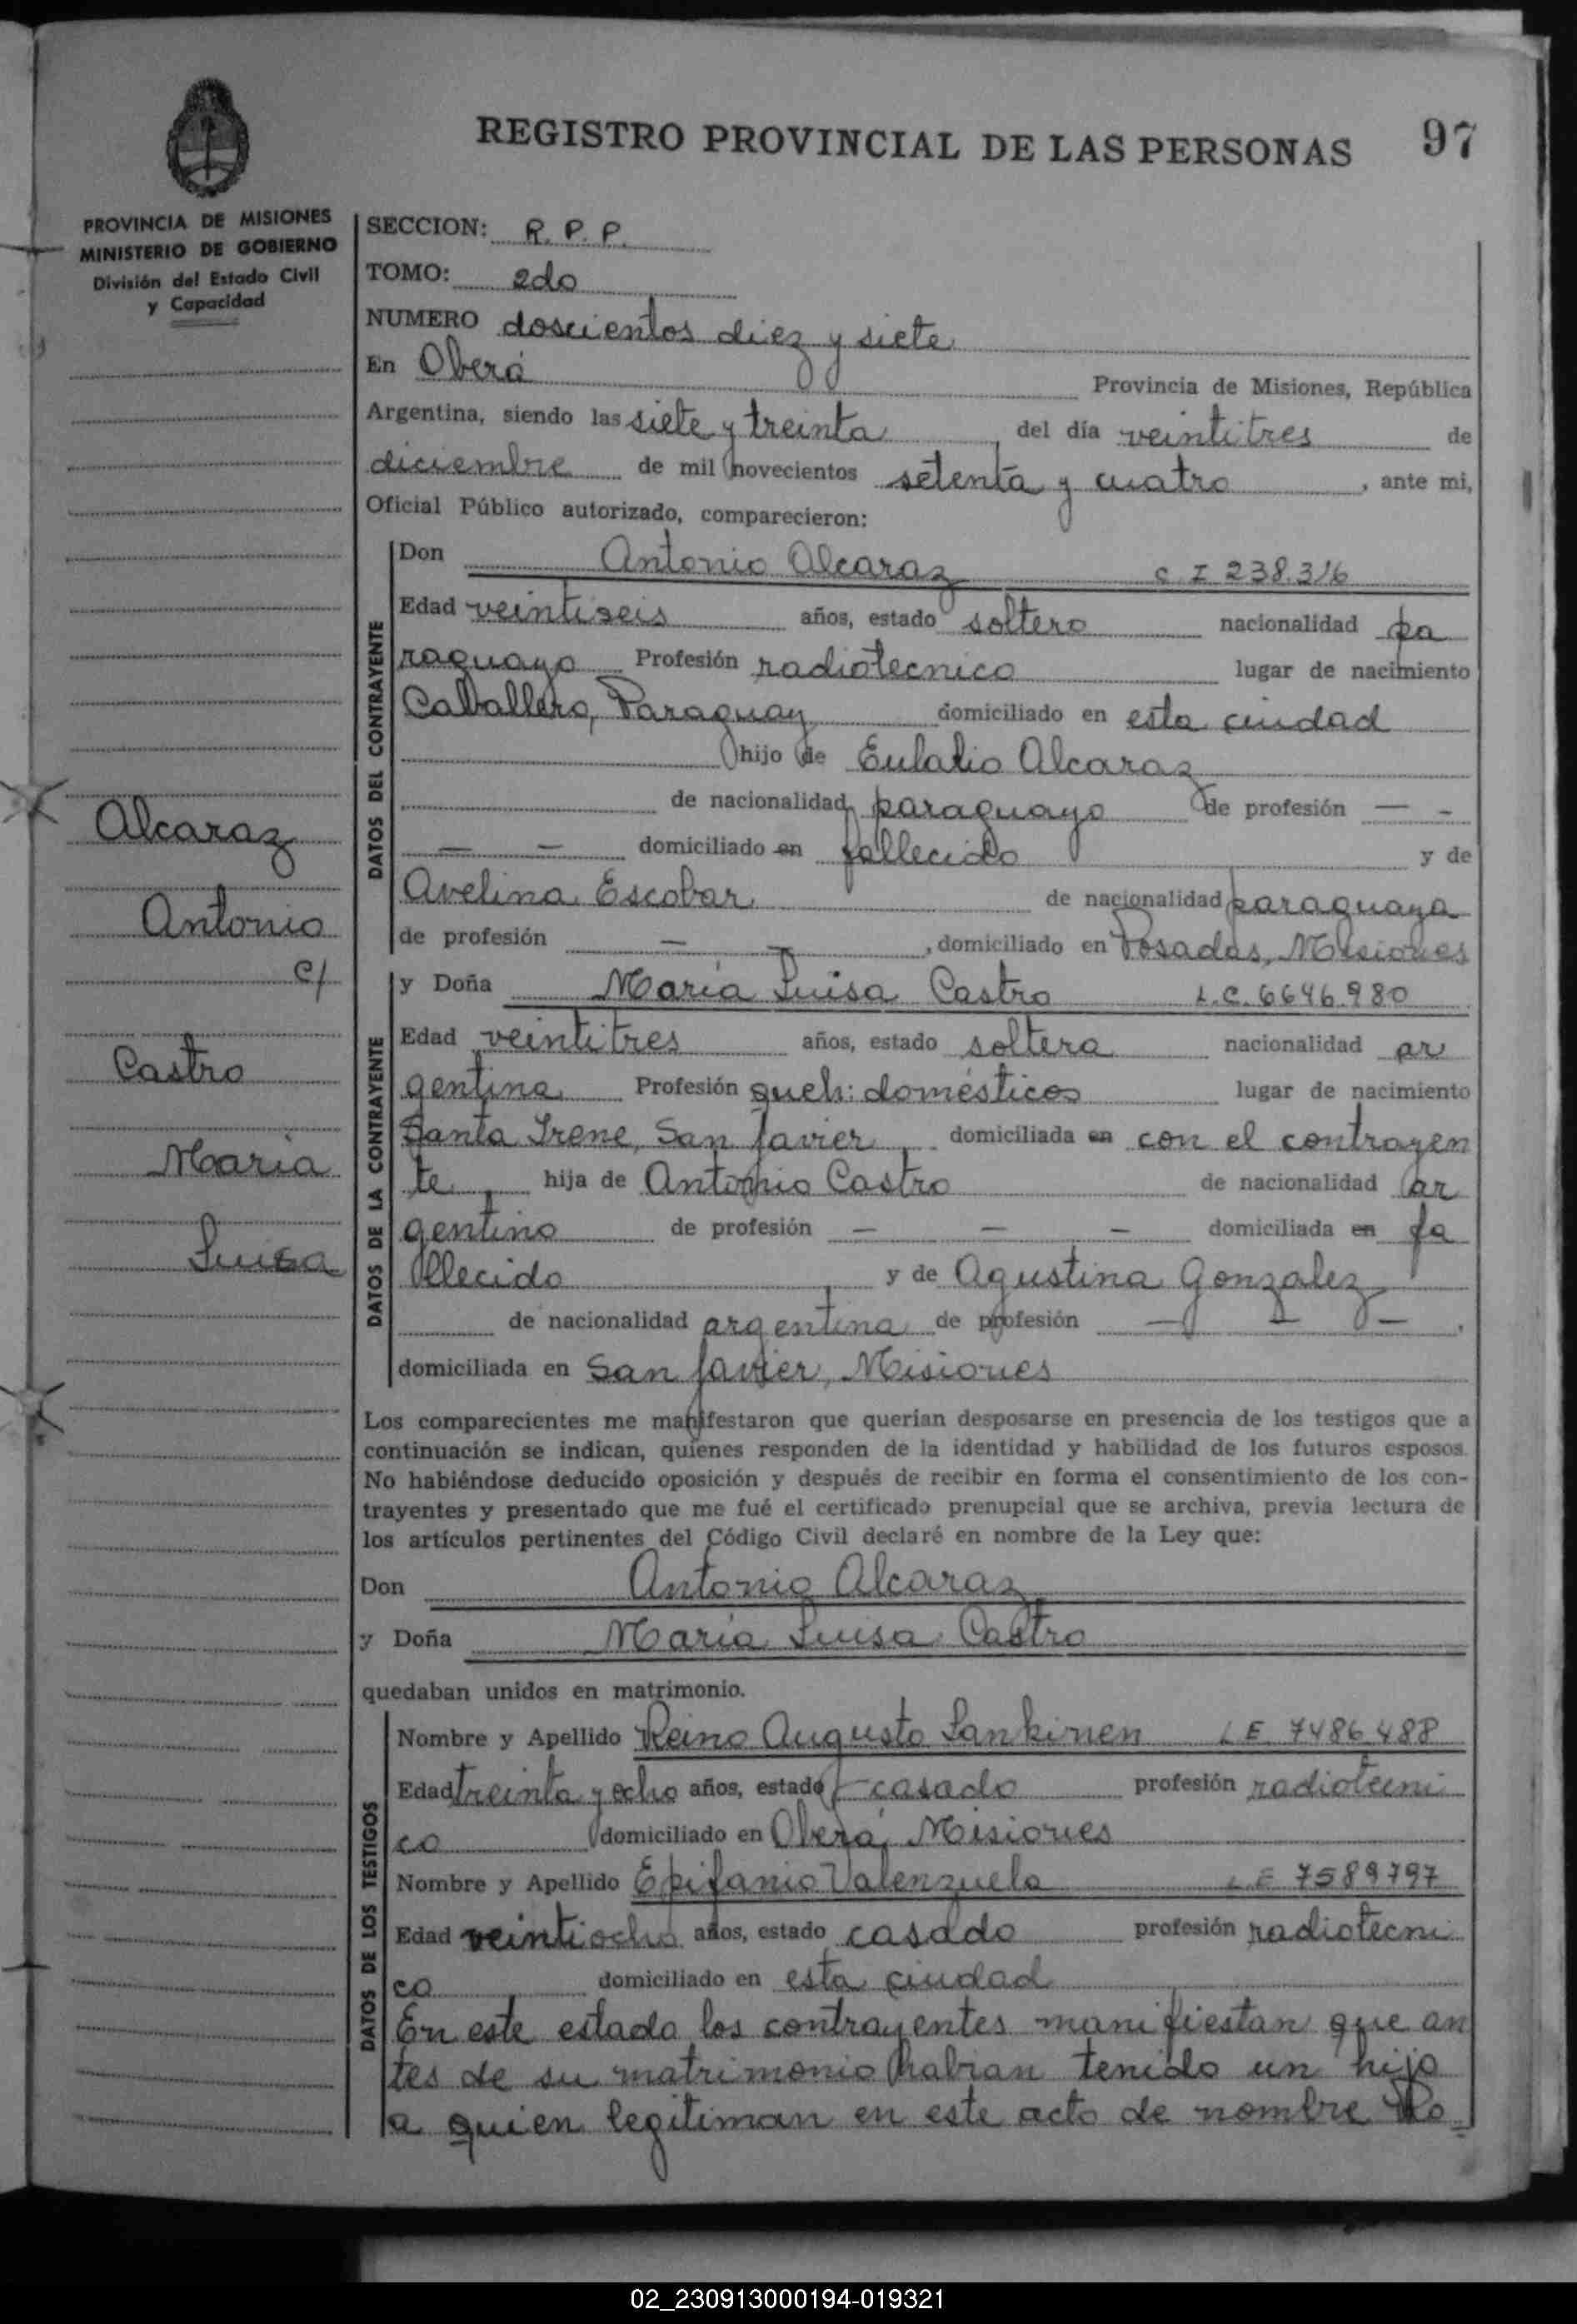 REGISTRO PROVINCIAL DE LAS PERSONAS 97
PROVINCIA DE MISIONES
MINISTERIO DE GOBIERNO
División del Estado Civil
y Capacidad
SECCION: R. P. P.
TOMO: 2do
NUMERO doscientos diez y siete
En Oberá Provincia de Misiones, República
Argentina, siendo las siete y treinta del día veintitres de
diciembre de mil novecientos setenta y cuatro, ante mi,
Oficial Público autorizado, comparecieron:
Alcaraz
Antonio
c/
Castro
Maria
Luisa
DATOS DEL CONTRAYENTE
Don Antonio Alcaraz C. I 238.316
Edad veintiseis años, estado soltero nacionalidad pa
raguayo Profesión radiotecnico lugar de nacimiento
Caballero, Paraguay domiciliado en esta ciudad
hijo de Eulalio Alcaraz
de nacionalidad paraguayo de profesión — -
— — domiciliado en fallecido y de
Avelina Escobar de nacionalidad paraguaya
de profesión — —, domiciliado en Posadas, Misiones
DATOS DE LA CONTRAYENTE
y Doña María Luisa Castro L.C. 6646.980
Edad veintitres años, estado soltera nacionalidad ar
gentina Profesión queh: domésticos lugar de nacimiento
Santa Irene, San Javier domiciliada en con el contrayen
te, hija de Antonio Castro de nacionalidad ar
gentino de profesión — — — domiciliada en fa
llecido y de Agustina Gonzalez
de nacionalidad argentina de profesión — — —,
domiciliada en San Javier, Misiones
Los comparecientes me manifestaron que querían desposarse en presencia de los testigos que a
continuación se indican, quienes responden de la identidad y habilidad de los futuros esposos.
No habiéndose deducido oposición y después de recibir en forma el consentimiento de los con-
trayentes y presentado que me fué el certificado prenupcial que se archiva, previa lectura de
los artículos pertinentes del Código Civil declaré en nombre de la Ley que:
Don Antonio Alcaraz
y Doña María Luisa Castro
quedaban unidos en matrimonio.
DATOS DE LOS TESTIGOS
Nombre y Apellido Reino Augusto Lankinen L E. 7486488
Edad treinta y ocho años, estado casado profesión radiotecni
co domiciliado en Oberá, Misiones
Nombre y Apellido Epifanio Valenzuela L.E 7589797
Edad veintiocho años, estado casado profesión radiotecni
co domiciliado en esta ciudad
En este estado los contrayentes manifiestan que an
tes de su matrimonio habian tenido un hijo
a quien legitiman en este acto de nombre Ro
02_230913000194-019321